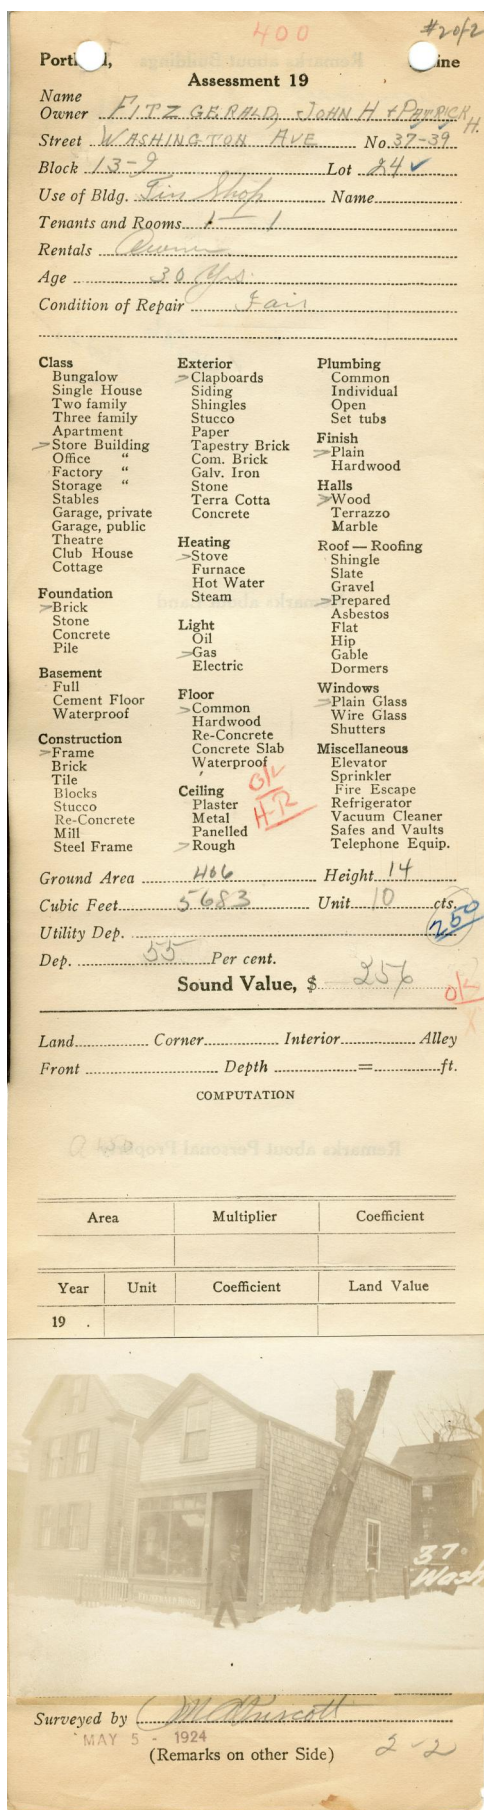 400
#2 of 2
Portland, Maine
Assessment 19
Name
Owner FITZGERALD, JOHN H + PATRICK H.
Street WASHINGTON AVE No. 37-39
Block 13-J Lot 24 ✓
Use of Bldg. Tin Shop Name
Tenants and Rooms 1 — 1
Rentals Owner
Age 30 Yrs.
Condition of Repair Fair
Class
Bungalow
Single House
Two family
Three family
Apartment
> Store Building
Office "
Factory "
Storage "
Stables
Garage, private
Garage, public
Theatre
Club House
Cottage
Foundation
> Brick
Stone
Concrete
Pile
Basement
Full
Cement Floor
Waterproof
Construction
> Frame
Brick
Tile
Blocks
Stucco
Re-Concrete
Mill
Steel Frame
Exterior
> Clapboards
Siding
Shingles
Stucco
Paper
Tapestry Brick
Com. Brick
Galv. Iron
Stone
Terra Cotta
Concrete
Heating
> Stove
Furnace
Hot Water
Steam
Light
Oil
> Gas
Electric
Floor
> Common
Hardwood
Re-Concrete
Concrete Slab
Waterproof
Ceiling
Plaster
Metal
Panelled
> Rough
O/K
H-R
Plumbing
Common
Individual
Open
Set tubs
Finish
> Plain
Hardwood
Halls
> Wood
Terrazzo
Marble
Roof — Roofing
Shingle
Slate
Gravel
> Prepared
Asbestos
Flat
Hip
Gable
Dormers
Windows
> Plain Glass
Wire Glass
Shutters
Miscellaneous
Elevator
Sprinkler
Fire Escape
Refrigerator
Vacuum Cleaner
Safes and Vaults
Telephone Equip.
Ground Area 406 Height 14
Cubic Feet 5683 Unit 10 cts.
250
Utility Dep.
Dep. 55 Per cent.
Sound Value, $ 256
O/K
Land Corner Interior Alley
Front Depth = ft.
COMPUTATION
Area Multiplier Coefficient
Year Unit Coefficient Land Value
19 .
37-
Wash
Surveyed by
MAY 5 - 1924
(Remarks on other Side)
2-2